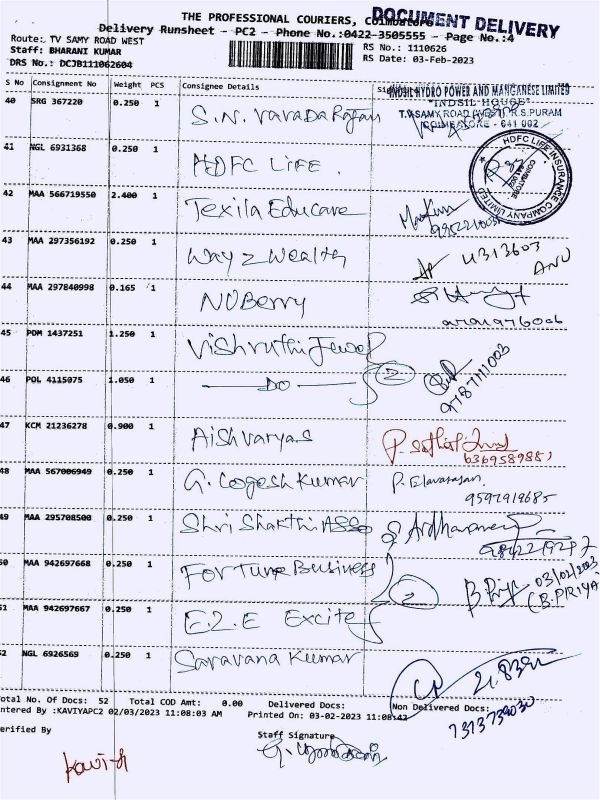 THE PROFESSIONAL COURIERS, Coimbatore
DOCUMENT DELIVERY
Delivery Runsheet - PC2 - Phone No.:0422-3505555 - Page No.:4
Route: TV SAMY ROAD WEST
Staff: BHARANI KUMAR
DRS No.: DCJB111062604
RS No.: 1110626
RS Date: 03-Feb-2023
S No Consignment No Weight PCS Consignee Details
INDSIL HYDRO POWER AND MANGANESE LIMITED
"INDSIL HOUSE"
T.V.SAMY ROAD (WEST), R.S.PURAM
COIMBATORE - 641 002
40 SRG 367220 0.250 1 S.N. Varadarajan
41 NGL 6931368 0.250 1 HDFC LIFE.
HDFC LIFE INSURANCE COMPANY LIMITED
COIMBATORE
42 MAA 566719550 2.400 1 Texila Educare
43 MAA 297356192 0.250 1 Way 2 Wealth
4313603
ANU
44 MAA 297840998 0.165 1 NUBerry
45 PDM 1437251 1.250 1 Vishruthi Jewel
46 POL 4115075 1.050 1 DO
2
9787111003
47 KCM 21236278 0.900 1 Aishvaryas
48 MAA 567006949 0.250 1 G. Logesh Kumar P. Elavarasan.
9592919685
49 MAA 295708500 0.250 1 Shri Shakthi Asso
50 MAA 942697668 0.250 1 Fortune Business
2
03/02/2023
(B.PRIYA
51 MAA 942697667 0.250 1 E.2.E Excite
52 NGL 6926569 0.250 1 Saravana Kumar
7373739030
Total No. Of Docs: 52 Total COD Amt: 0.00 Delivered Docs: Non Delivered Docs:
Entered By :KAVIYAPC2 02/03/2023 11:08:03 AM Printed On: 03-02-2023 11:08:42
Verified By
Staff Signature